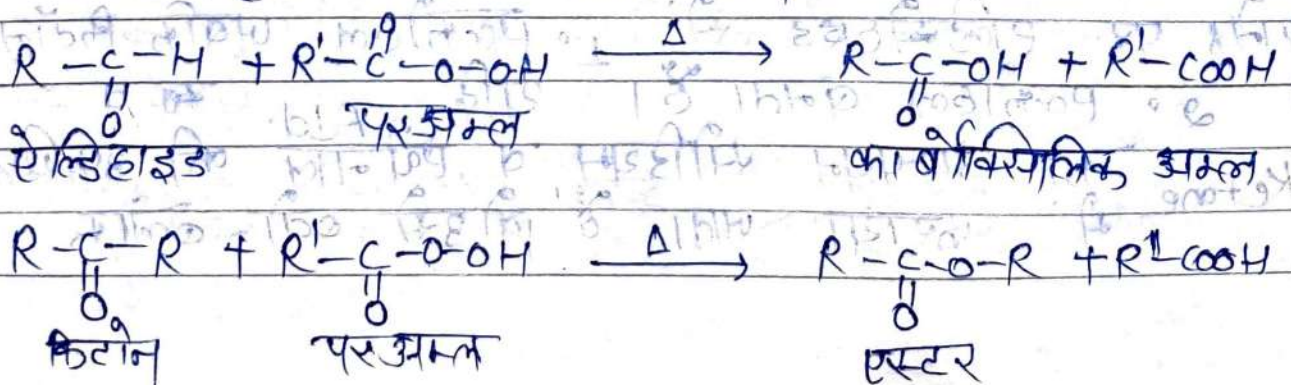 R-C-H + R'-C-O-OH →Δ R-C-OH + R'-COOH
O O O
ऐल्डिहाइड परअम्ल कार्बोक्सिलिक अम्ल
R-C-R + R'-C-O-OH →Δ R-C-O-R + R'-COOH
O O O
किटोन परअम्ल एस्टर